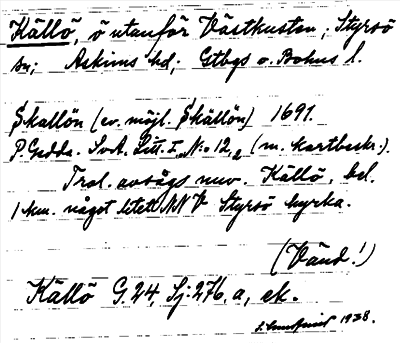 Källö, ö utanför Västkusten; Styrsö
sn; Askims hd; Gtbgs o. Bohus l.
Skallön (ev. möjl. Skällön) 1691.
P. Gedda. SvA. Litt. I. No 12,2 (m. kartbeskr.).
Trol. avsågs nuv. Källö, bel.
1 km. något litet NNV Styrsö kyrka.
(Vänd!)
Källö G.24, Sj:276, a, ek.
1928.